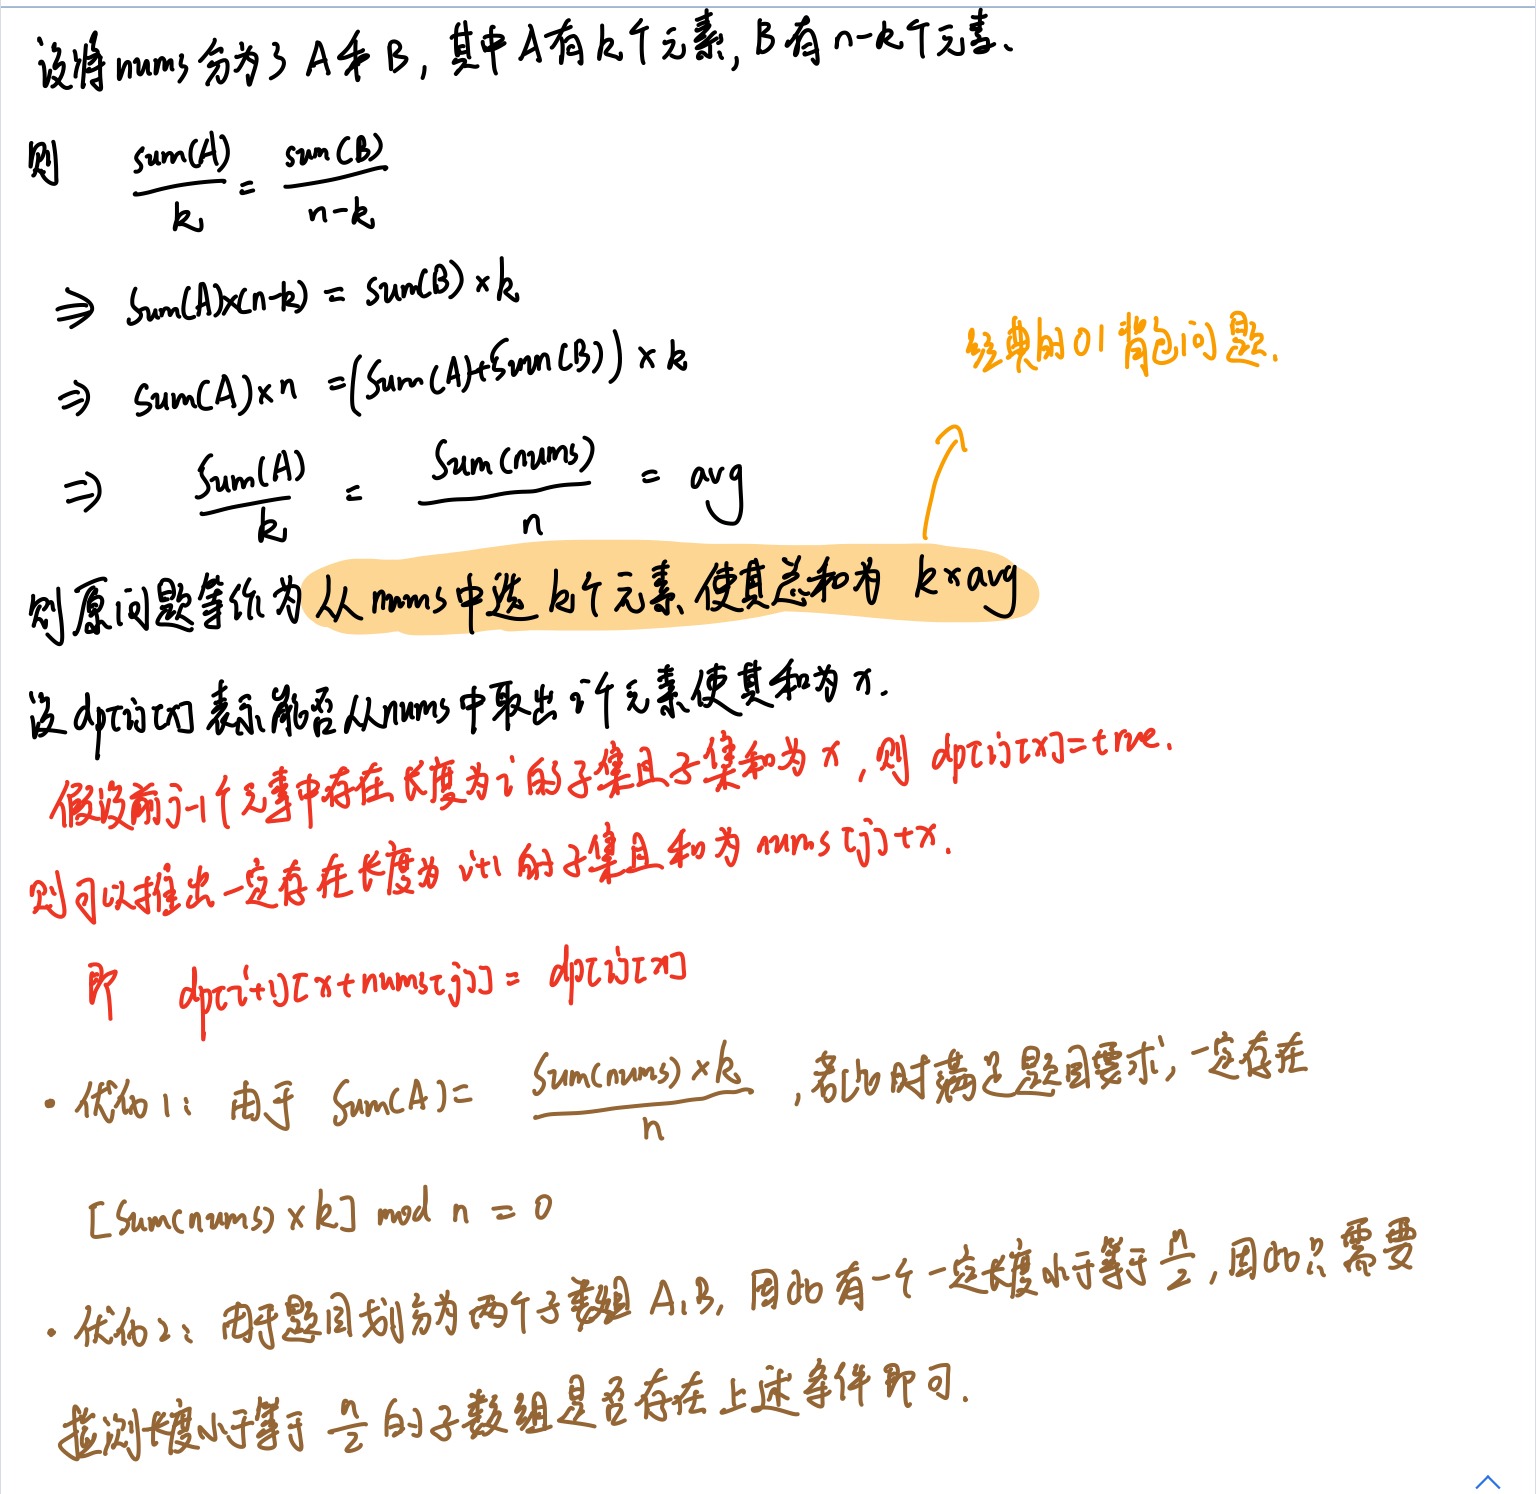 设将nums分为了 A 和 B, 其中 A有 k个元素, B有 n-k个元素、
则 sum(A)/k = sum(B)/(n-k)
⇒ Sum(A)×(n-k) = sum(B) × k
经典的01背包问题.
⇒ Sum(A)×n =(Sum(A)+Sum(B)) × k
⇒ Sum(A)/k = Sum(nums)/n = avg
则原问题等价为 从nums中选 k个元素、使其总和为 k×avg
设 dp[i][x] 表示能否从nums中取出 i个元素使其和为 x.
假设前j-1个元素中存在长度为 i 的子集且子集和为 x, 则 dp[i][x]=true.
则可以推出一定存在长度为 i+1 的子集且和为 nums[j]+x.
即 dp[i+1][x+nums[j]] = dp[i][x]
· 优化1: 由于 Sum(A)= Sum(nums)×k/n , 若此时满足题目要求, 一定存在
[Sum(nums) × k] mod n = 0
· 优化2: 由于题目划分为两个子数组 A、B, 因此有一个一定长度小于等于 n/2, 因此只需要
检测长度小于等于 n/2 的子数组是否存在上述条件即可.